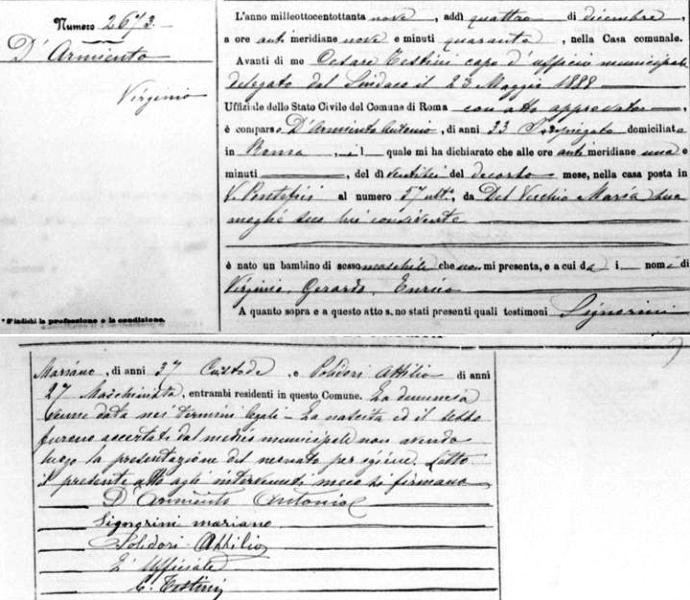 Numero 2673.
D'Armiento
Virginio
* S'indichi la professione o la condizione.
L'anno milleottocentottanta nove, addì quattro di dicembre,
a ore anti meridiane nove e minuti quaranta, nella Casa comunale.
Avanti di me Cesare Testini capo d'ufficio municipale
delegato dal Sindaco il 23 Maggio 1888
Uffiziale dello Stato Civile del Comune di Roma con atto approvato,
è comparso D'Armiento Antonio, di anni 33 Impiegato domiciliato
in Roma, il quale mi ha dichiarato che alle ore anti meridiane una e
minuti, del dì ventisei del decorso mese, nella casa posta in
V. Pontefici al numero 57 ult., da Del Vecchio Maria sua
moglie seco lui convivente
è nato un bambino di sesso maschile che non mi presenta, e a cui dà i nomi di
Virginio, Gerardo, Enrico
A quanto sopra e a questo atto sono stati presenti quali testimoni Signorini
Mariano, di anni 37 Custode, e Polidori Attilio di anni
27 Macchinista, entrambi residenti in questo Comune. La denuncia
venne data nei termini legali. La nascita ed il sesso
furono accertati dal medico municipale non avendo
luogo la presentazione del neonato per igiene. Letto
il presente atto agli intervenuti meco si firmano
D'Armiento Antonio
Signorini mariano
Polidori Attilio
L'Ufficiale
C. Testini